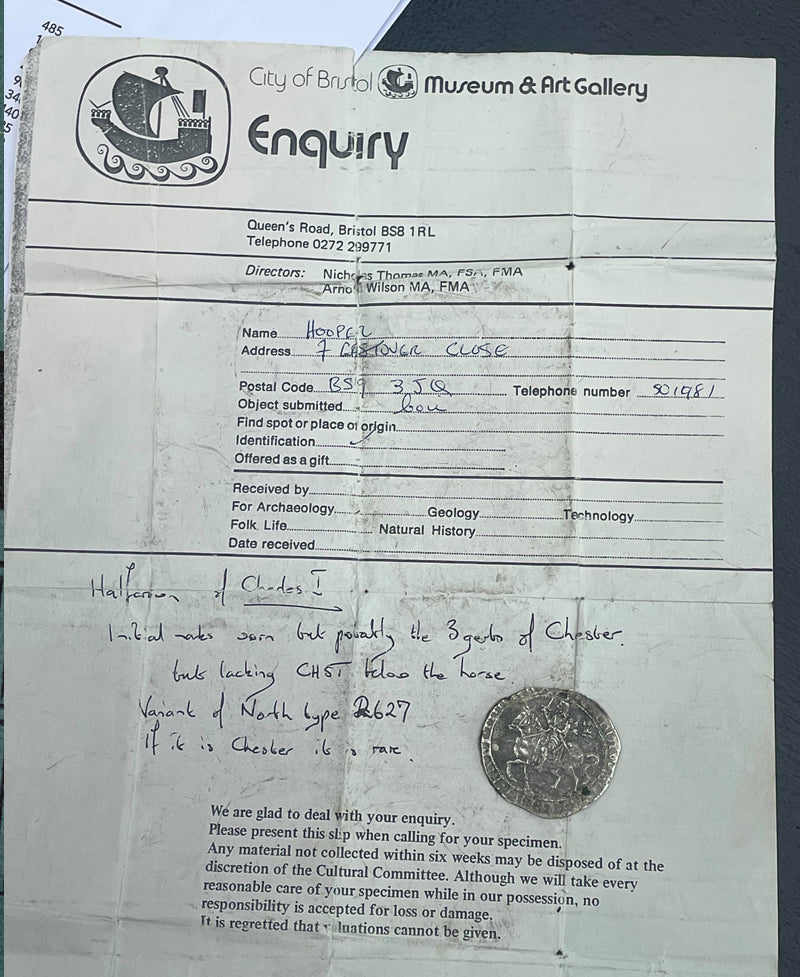 485
1
9
34
40
5
City of Bristol Museum & Art Gallery
Enquiry
Queen's Road, Bristol BS8 1RL
Telephone 0272 299771
Directors: Nicholas Thomas MA, FSA, FMA
Arnold Wilson MA, FMA
Name HOOPER
Address 7 EASTOVER CLOSE
Postal Code BS9 3JQ Telephone number 501981
Object submitted Coin
Find spot or place of origin
Identification
Offered as a gift
Received by
For Archaeology Geology Technology
Folk Life Natural History
Date received
Halfcrown of Charles I
Initial marks worn but probably the 3 gerbs of Chester.
but lacking CHST below the horse.
Variant of North type 2627
If it is Chester it is rare.
We are glad to deal with your enquiry.
Please present this slip when calling for your specimen.
Any material not collected within six weeks may be disposed of at the
discretion of the Cultural Committee. Although we will take every
reasonable care of your specimen while in our possession, no
responsibility is accepted for loss or damage.
It is regretted that valuations cannot be given.